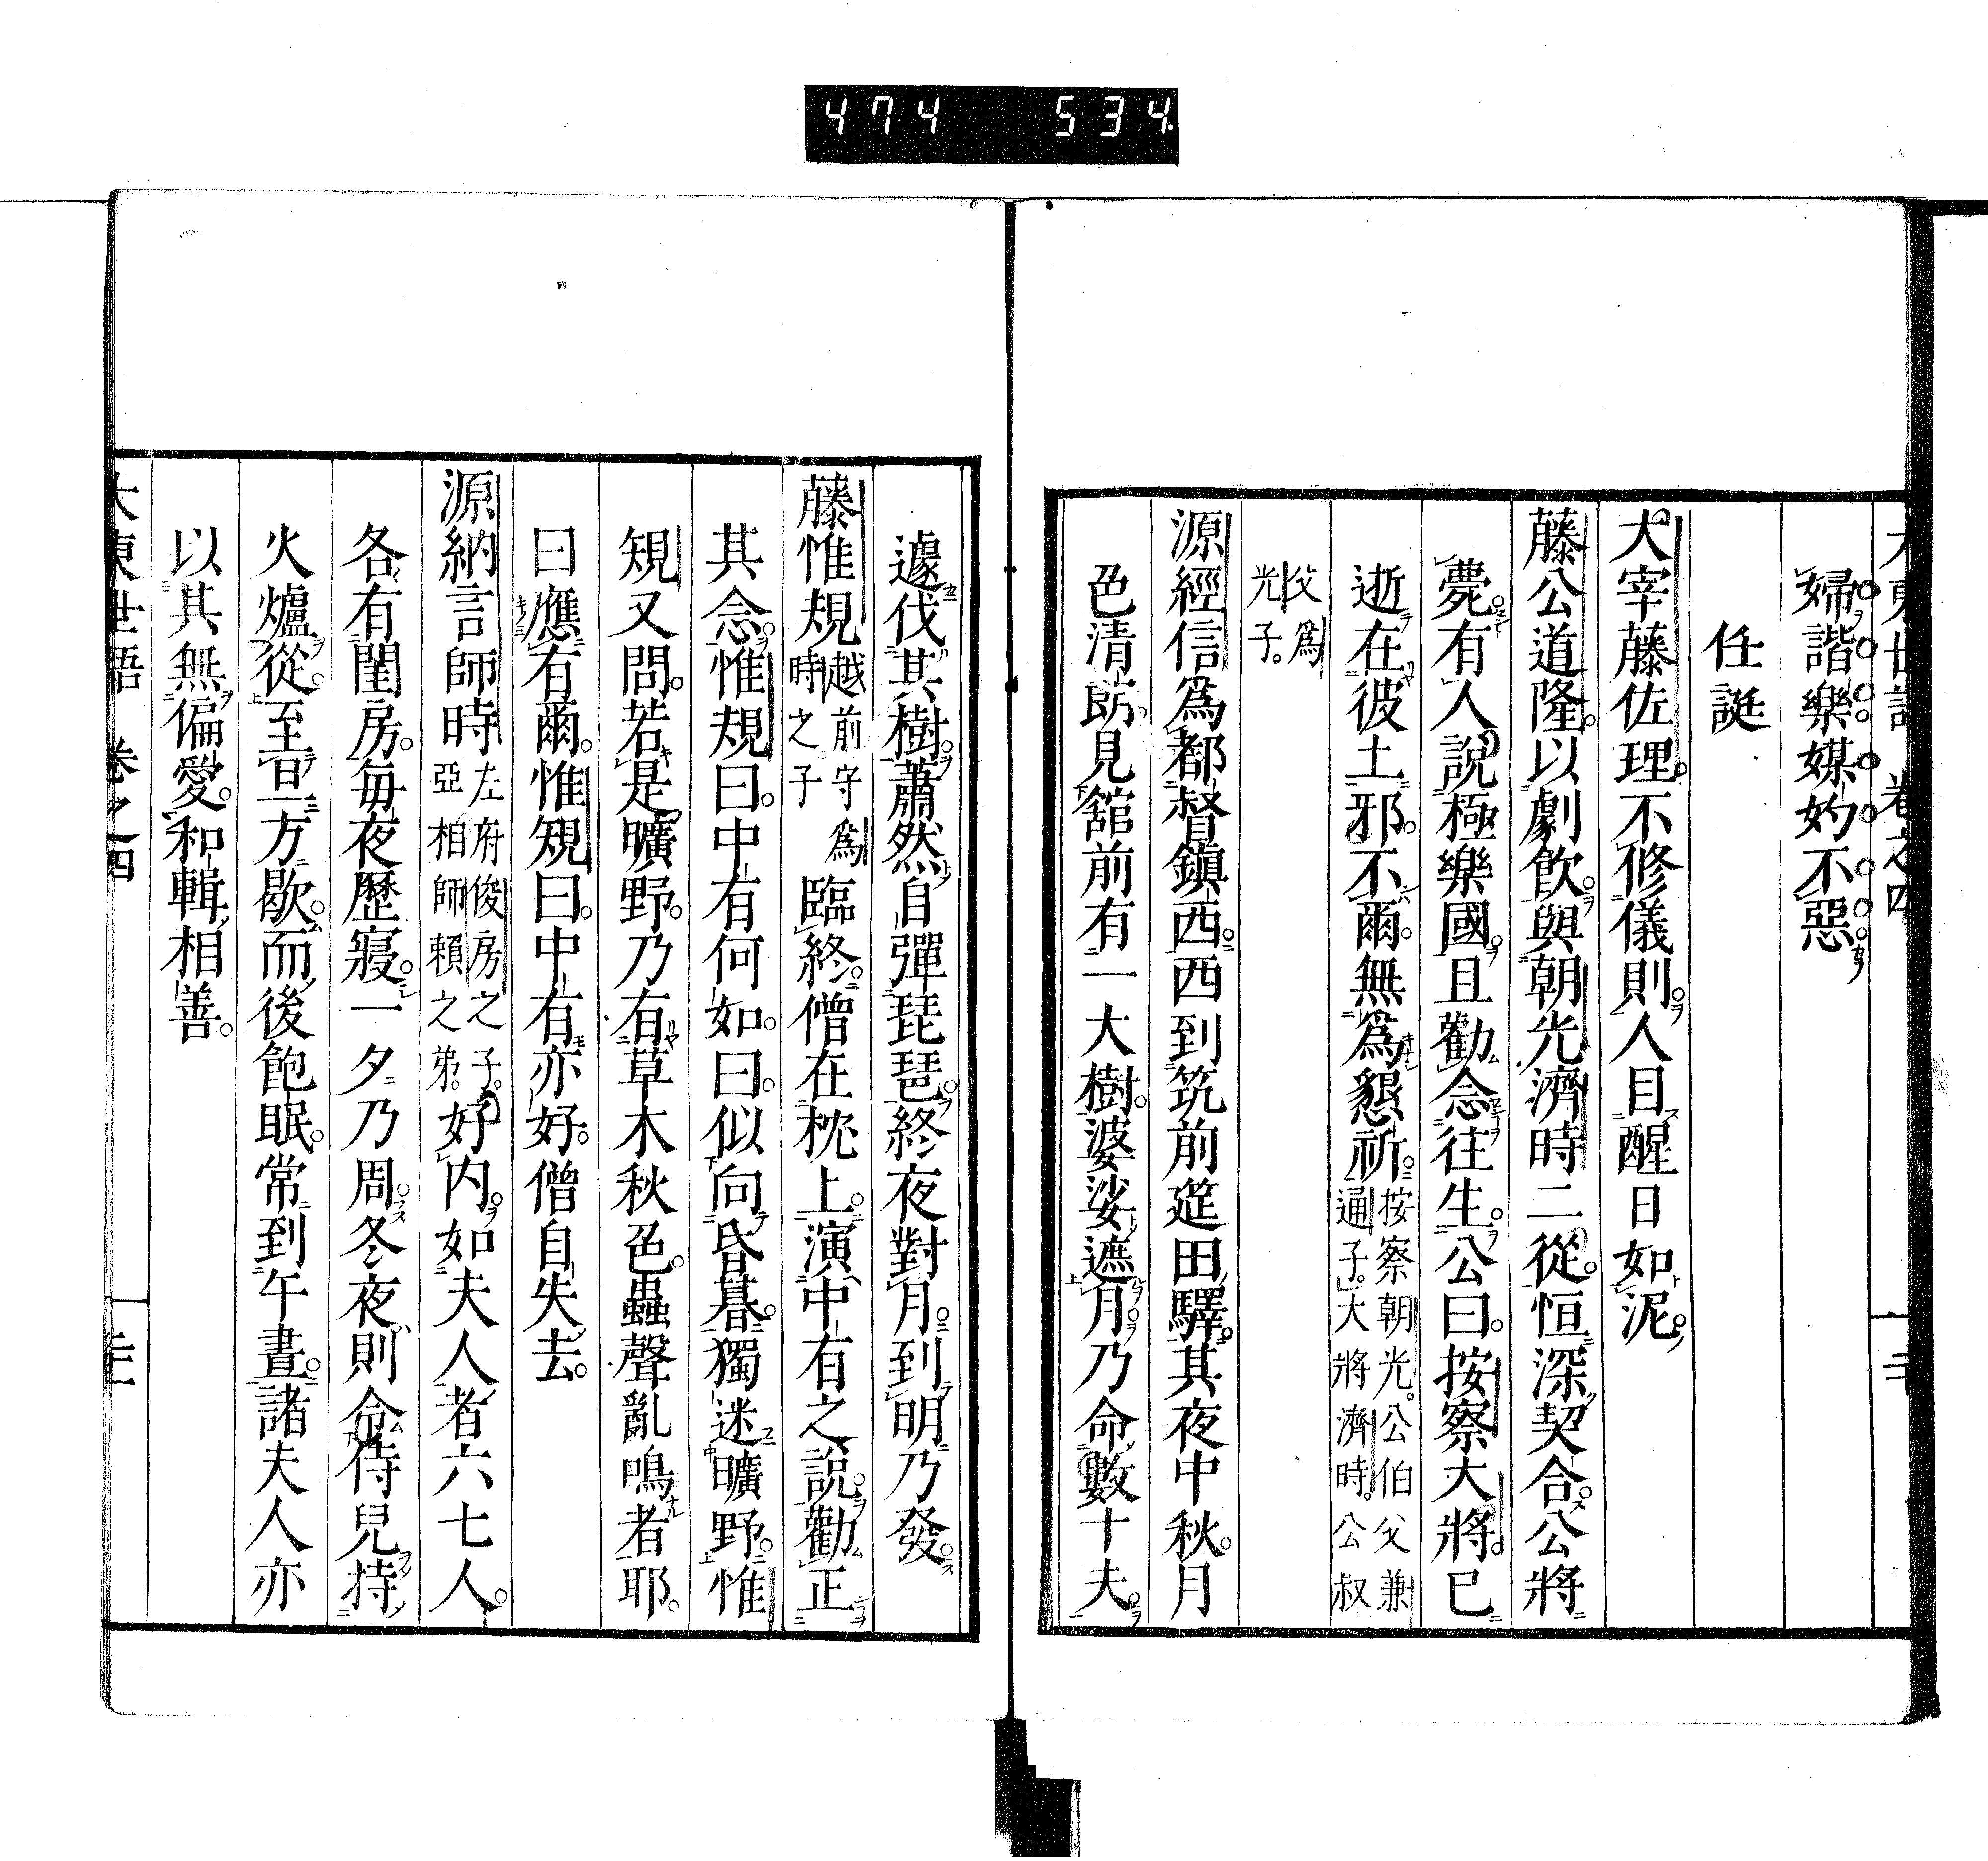 474 534
大東世語 卷之四 二十
婦諧樂媒妁不惡
任誕
大宰藤佐理。不修儀則。人目醒日如泥。
藤公道隆。以劇飲。與朝光濟時二從。恒深契合。公將
薨。有人說極樂國。且勸念往生。公曰。按察大將。已
逝在彼土邪。不爾。無爲懇祈。按察朝光。公伯父兼通子。大將濟時。公叔
父爲光子。
源經信爲都督鎭西。西到筑前筵田驛。其夜中秋。月
色清昉。見舘前有一大樹。婆娑遮月。乃命數十夫。
遽伐其樹。蕭然自彈琵琶。終夜對月。到明乃發。
藤惟規越前守爲時之子臨終。僧在枕上。演中有之說。勸正
其念。惟規曰。中有何如。曰。似向昏暮。獨迷曠野。惟
規又問。若是曠野。乃有草木秋色。蟲聲亂鳴者耶。
曰應有爾。惟規曰。中有亦好。僧自失去。
源納言師時左府俊房之子。亞相師賴之弟。好内。如夫人者六七人。
各有閨房。每夜歷寢。一夕乃周。冬夜則令侍兒持
火爐從。至旦一方歇。而後飽眠。常到午晝。諸夫人亦
以其無偏愛。和輯相善。
大東世語 卷之四